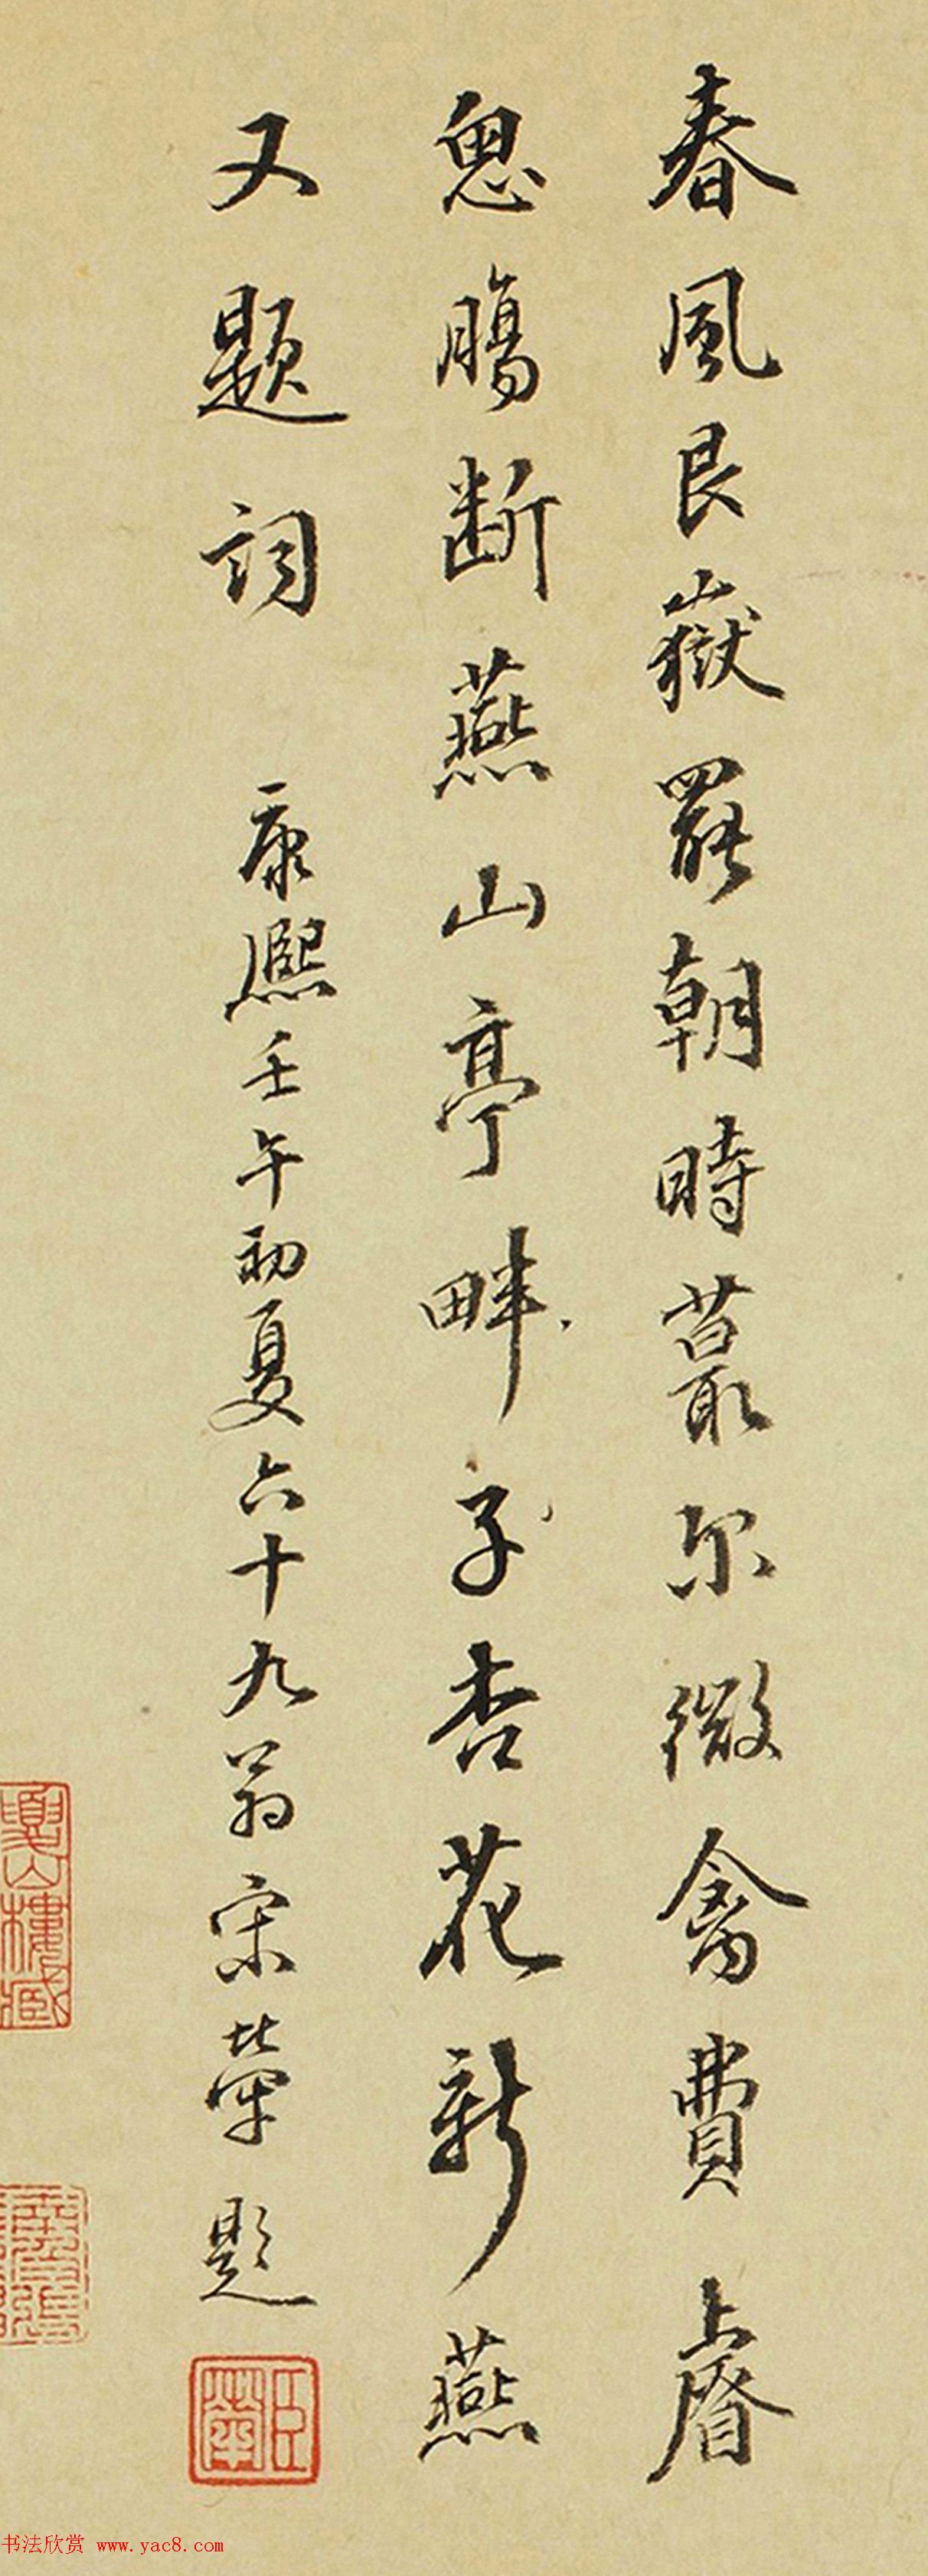 春風艮嶽罷朝時蕞尔微禽費上睂
忽腸断燕山亭畔子杏花新燕
又題詞 康熙壬午初夏六十九翁宋犖題
臣犖
書法欣赏 www.yac8.com